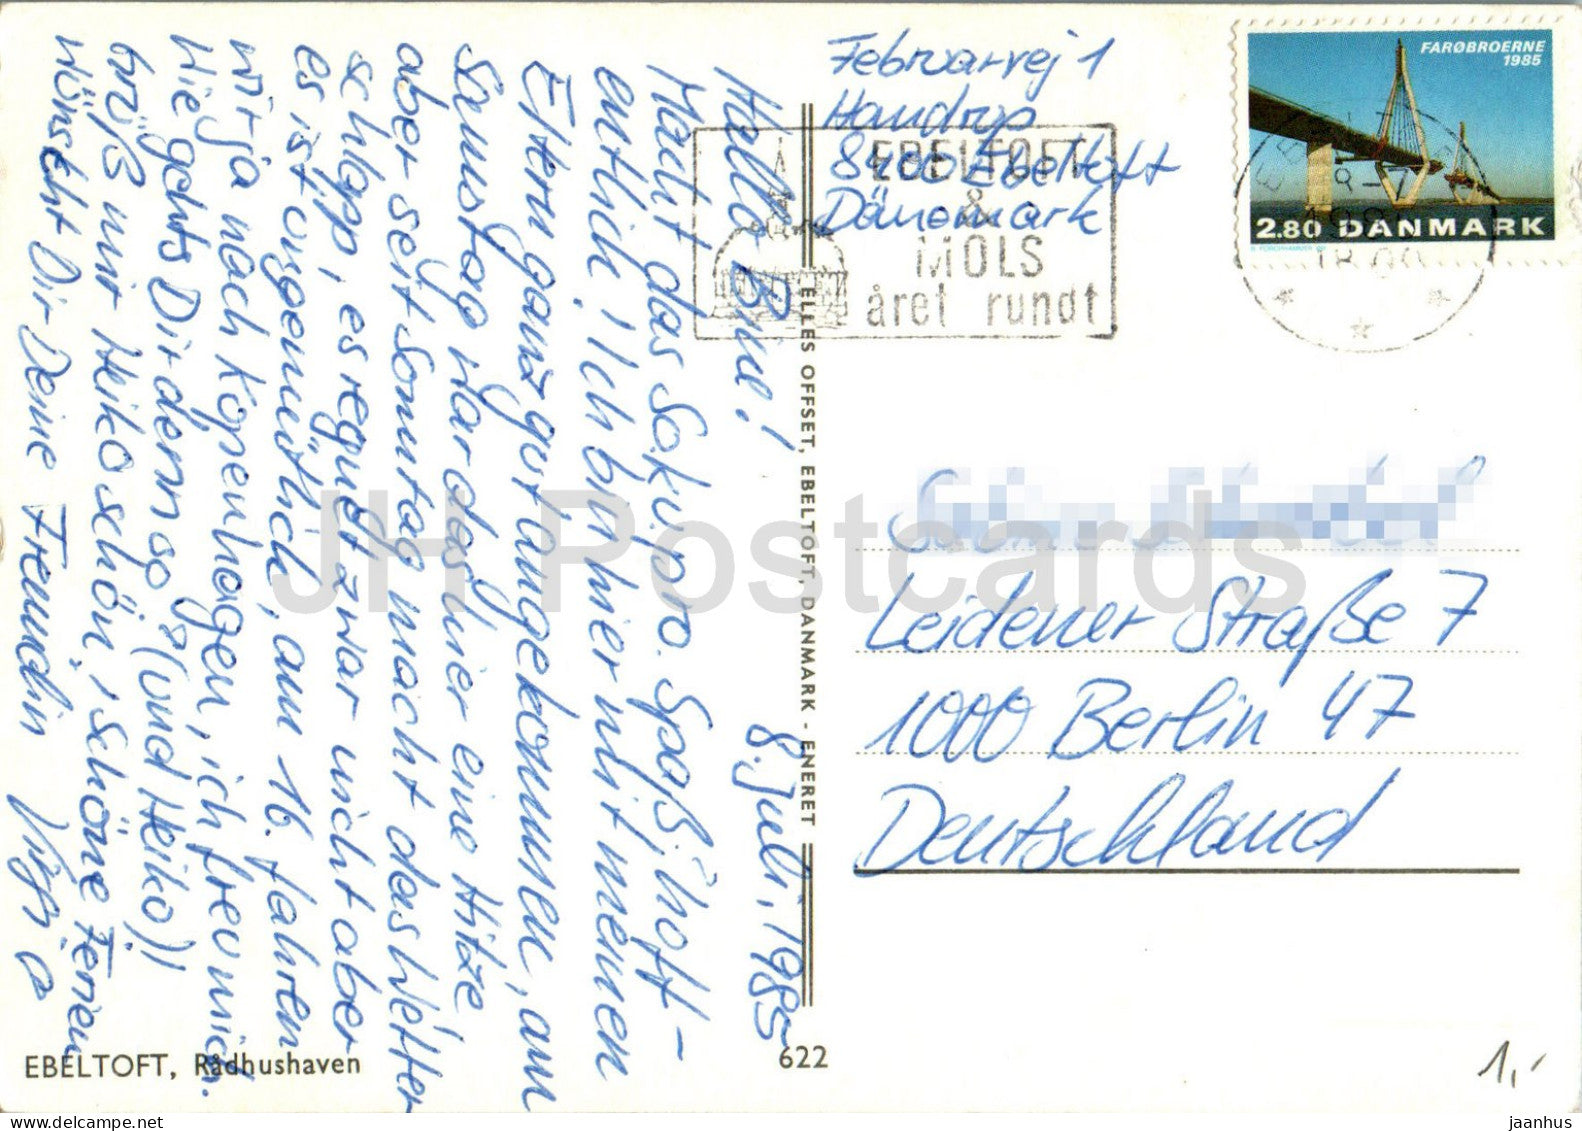 Februarvej 1
Handrup
8400 Ebeltoft
Dänemark
FARØBROERNE
1985
2.80 DANMARK
EBELTOFT
&
MOLS
året rundt
18.00
Hallo
8. Juli, 1985
Macht das Sokupro. Spaß, hoff-
entlich! Ich bin hier mit meinen
Eltern ganz gut angekommen, am
Samstag war das hier eine Hitze,
aber seit Sonntag macht das Wetter
schlapp, es regnet zwar nicht aber
es ist ungemütlich, am 16. fahren
wir ja nach Kopenhagen, ich freu mich.
Wie gehts Dir denn so? (und Heiko))
Grüß mir Heiko schön, schöne Ferien
wünscht Dir Deine Freundin
ELLES OFFSET, EBELTOFT, DANMARK - ENERET
Leidener Straße 7
1000 Berlin 47
Deutschland
JH Postcards
EBELTOFT, Rådhushaven
622
1,-
delcampe.net
jaanhus